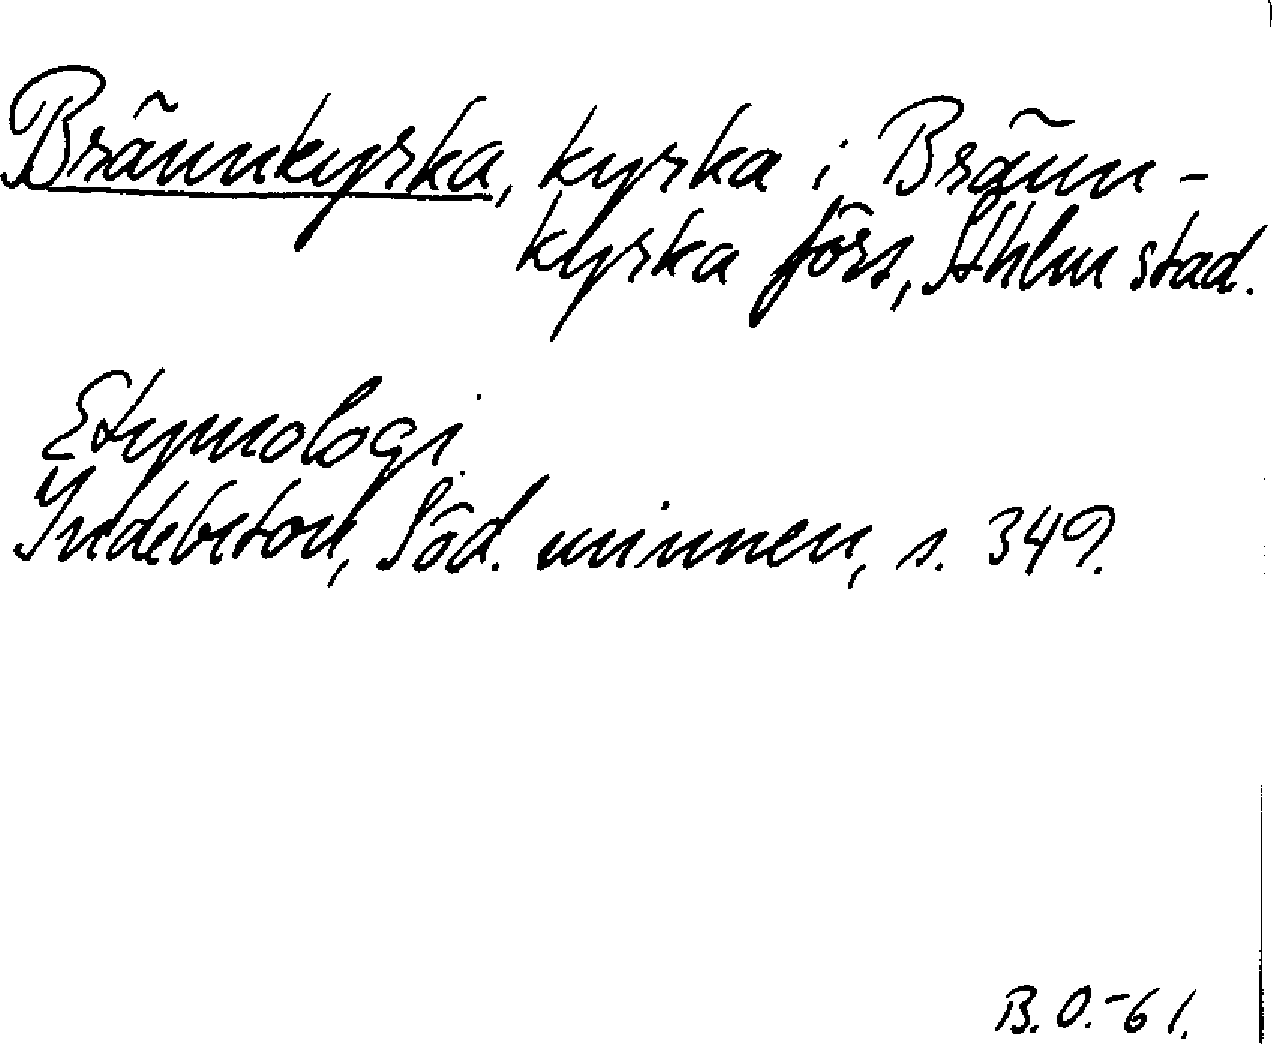 Brännkyrka, kyrka i Bränn-
kyrka förs, Sthlm stad.
Etymologi
Indebetou, Söd. minnen, s. 349.
B. O. -61.